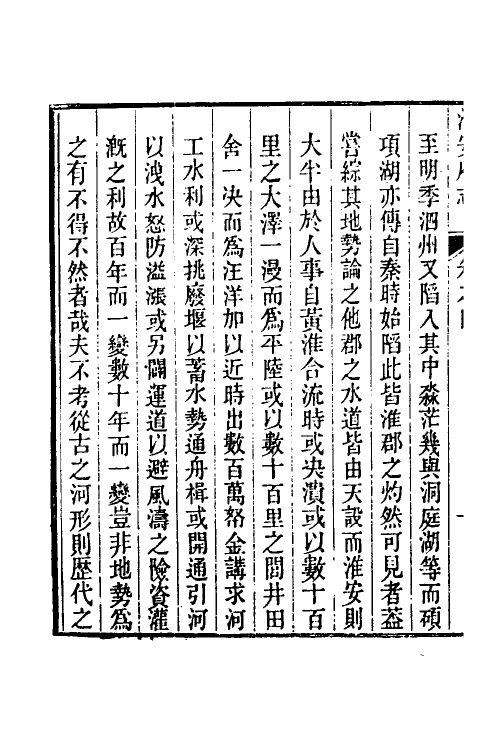 至明季泗州又陷入其中淼茫幾與洞庭湖等而碩
項湖亦傳自秦時始陷此皆淮郡之灼然可見者葢
嘗綜其地勢論之他郡之水道皆由天設而淮安則
大半由於人事自黃淮合流時或决潰或以數十百
里之大澤一漫而爲平陸或以數十百里之閭井田
舍一决而爲汪洋加以近時出數百萬帑金講求河
工水利或深挑廢堰以蓄水勢通舟楫或開通引河
以洩水怒防溢漲或另闢運道以避風濤之險資灌
漑之利故百年而一變數十年而一變豈非地勢爲
之有不得不然者哉夫不考從古之河形則歷代之